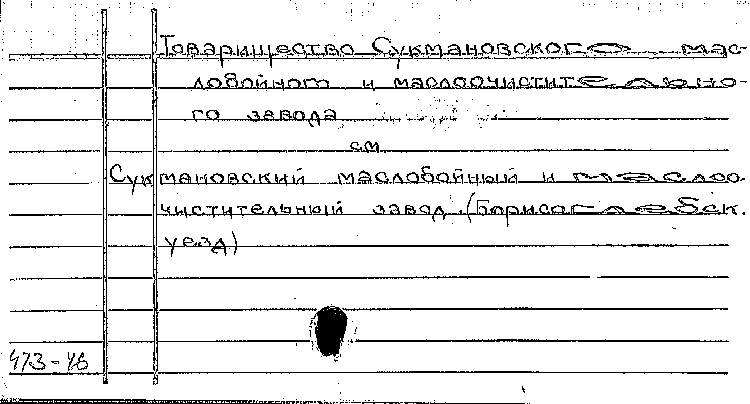 Товарищество Сукмановского мас-
лобойного и маслоочистительно-
го завода
см
Сукмановский маслобойный и маслоо
чистительный завод. (Борисоглебск.
уезд)
473-46